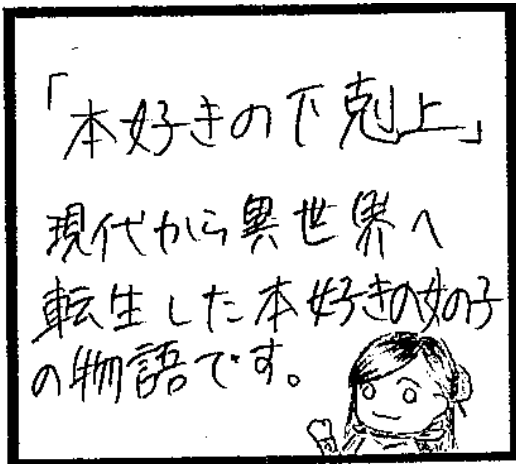 「本好きの下剋上」
現代から異世界へ
転生した本好きの女の子
の物語です。